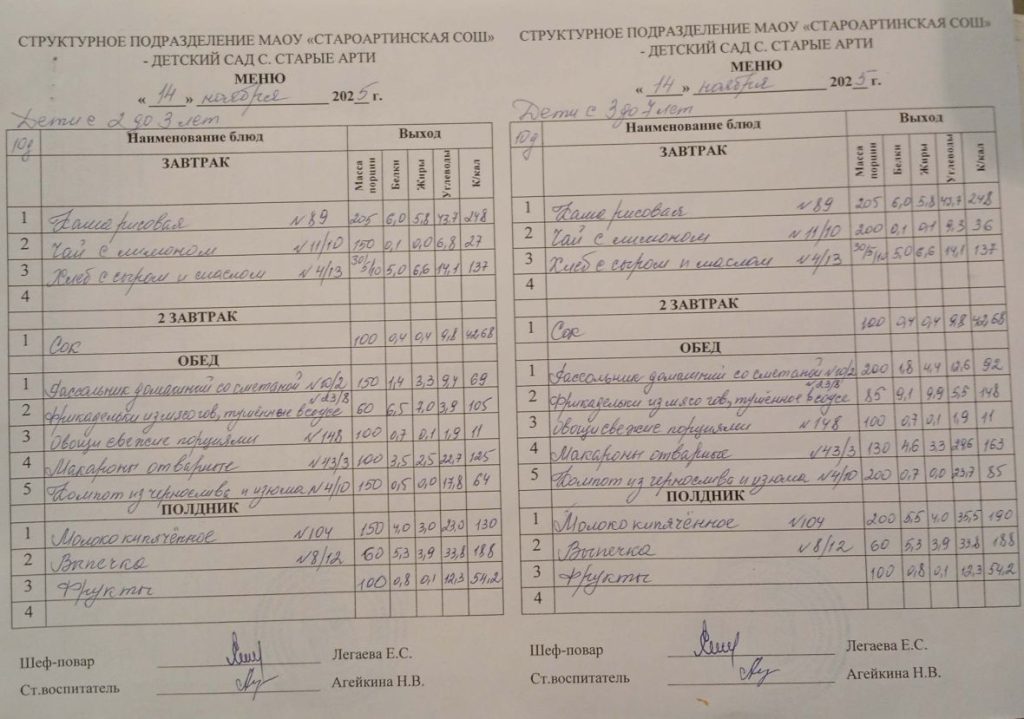 СТРУКТУРНОЕ ПОДРАЗДЕЛЕНИЕ МАОУ «СТАРОАРТИНСКАЯ СОШ»
- ДЕТСКИЙ САД С. СТАРЫЕ АРТИ
МЕНЮ
« 14 » ноября 2025 г.
Дети с 2 до 3 лет
10д Наименование блюд Выход
ЗАВТРАК Масса порции Белки Жиры Углеводы К/кал
1 Каша рисовая №89 205 6,0 5,8 43,7 248
2 Чай с лимоном №11/10 150 0,1 0,0 6,8 27
3 Хлеб с сыром и маслом №4/13 30/5/10 5,0 6,6 14,1 137
4
2 ЗАВТРАК
1 Сок 100 0,4 0,4 9,8 42,68
ОБЕД
1 Рассольник домашний со сметаной №10/2 150 1,4 3,3 9,4 69
2 Фрикадельки из мяса гов, тушённые в соусе №23/8 60 6,5 7,0 3,9 105
3 Овощи свежие порциями №148 100 0,7 0,1 1,9 11
4 Макароны отварные №43/3 100 3,5 2,5 22,7 125
5 Компот из чернослива и изюма №4/10 150 0,5 0,0 17,8 64
ПОЛДНИК
1 Молоко кипячённое №104 150 4,0 3,0 23,0 130
2 Выпечка №8/12 60 5,3 3,9 33,8 188
3 Фрукты 100 0,8 0,1 12,3 54,2
4
Шеф-повар Легаева Е.С.
Ст.воспитатель Агейкина Н.В.
СТРУКТУРНОЕ ПОДРАЗДЕЛЕНИЕ МАОУ «СТАРОАРТИНСКАЯ СОШ»
- ДЕТСКИЙ САД С. СТАРЫЕ АРТИ
МЕНЮ
« 14 » ноября 2025 г.
Дети с 3 до 7 лет
10д Наименование блюд Выход
ЗАВТРАК Масса порции Белки Жиры Углеводы К/кал
1 Каша рисовая №89 205 6,0 5,8 43,7 248
2 Чай с лимоном №11/10 200 0,1 0,1 9,3 36
3 Хлеб с сыром и маслом №4/13 30/5/10 5,0 6,6 14,1 137
4
2 ЗАВТРАК
1 Сок 100 0,4 0,4 9,8 42,68
ОБЕД
1 Рассольник домашний со сметаной №10/2 200 1,8 4,4 12,6 92
2 Фрикадельки из мяса гов, тушённое в соусе №23/8 85 9,1 9,9 5,5 148
3 Овощи свежие порциями №148 100 0,7 0,1 1,9 11
4 Макароны отварные №43/3 130 4,6 3,3 29,6 163
5 Компот из чернослива и изюма №4/10 200 0,7 0,0 23,7 85
ПОЛДНИК
1 Молоко кипячённое №104 200 5,5 4,0 35,5 190
2 Выпечка №8/12 60 5,3 3,9 33,8 188
3 Фрукты 100 0,8 0,1 12,3 54,2
4
Шеф-повар Легаева Е.С.
Ст.воспитатель Агейкина Н.В.